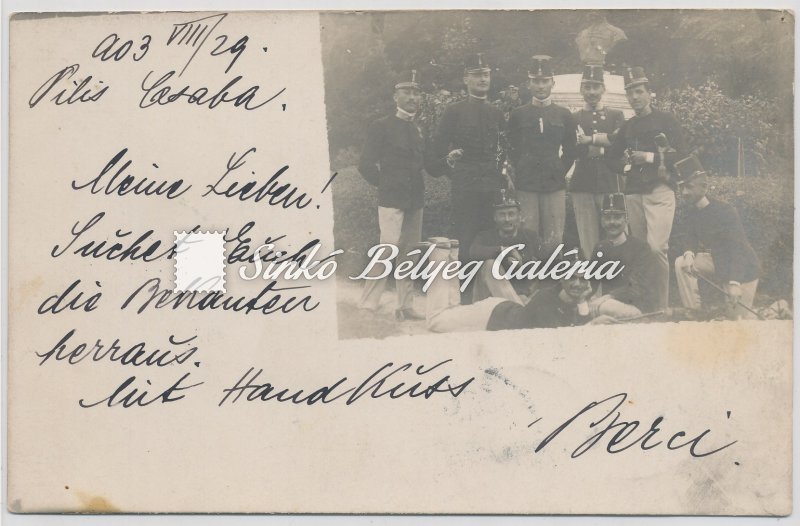 903 VIII/29.
Pilis Csaba.
Meine Lieben!
Suchet Euch
die Bekanten
herraus.
Mit HandKuss
Berci.
Sinkó Bélyeg Galéria